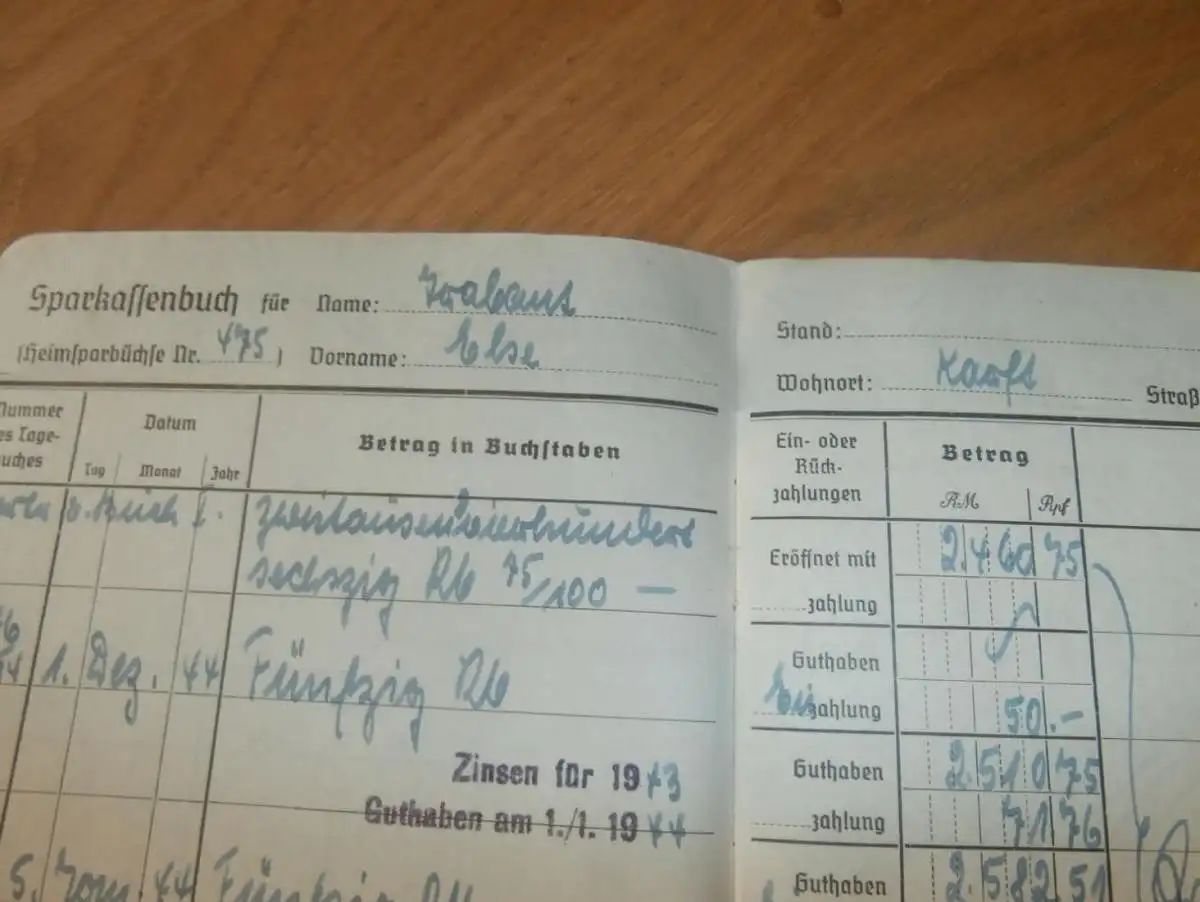 Sparkassenbuch für Name: Trabant
(Heimsparbüchse Nr. 475) Vorname: Else
Nummer
des Tage-
buches
Datum
Tag Monat Jahr
Betrag in Buchstaben
v. Buch I. zweitausendvierhundert
sechszig RM 75/100 —
1. Dez. 44 Fünfzig RM
Zinsen für 1943
Guthaben am 1./1. 1944
5. 44 Fünfzig RM
Stand:
Wohnort: Karft Straß
Ein- oder
Rück-
zahlungen
Betrag
RM Rpf
Eröffnet mit 2.460 75
zahlung
Guthaben
Einzahlung 50.–
Guthaben 2.510 75
zahlung 71 76
Guthaben 2.582 51